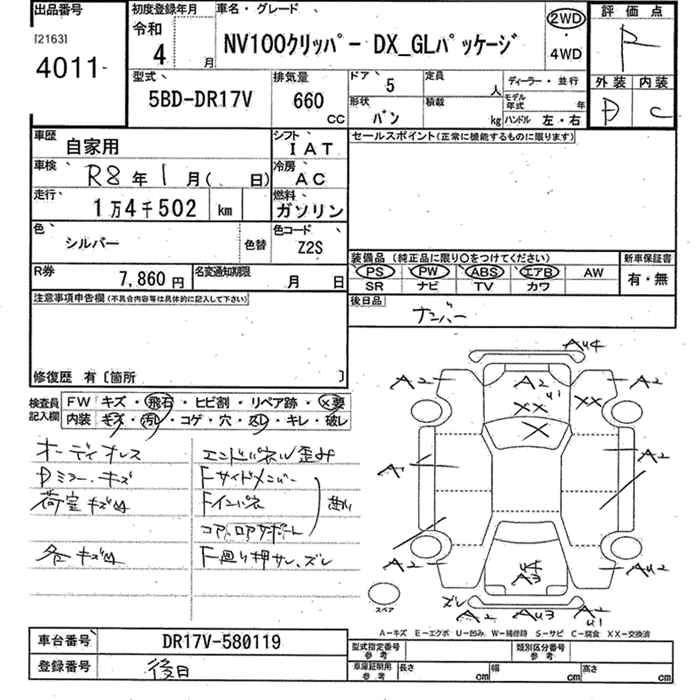 出品番号
[2163]
4011-
初度登録年月
令和
4 月
車名・グレード
NV100クリッパー DX_GLパッケージ
2WD
・
4WD
評価点
R
外装 内装
D C
型式
5BD-DR17V
排気量
660
CC
ドア 5
定員 人
ディーラー・並行
形状
バン
積載 kg
モデル年式 年
ハンドル 左・右
車歴
自家用
シフト
IAT
セールスポイント(正常に機能するものに限ります)
車検
R8年1月( 日)
冷房
AC
走行
1万4千502 km
燃料
ガソリン
色
シルバー
色替
色コード
Z2S
装備品(純正品に限り○をつけてください)
新車保証書
PS PW ABS エアB AW
SR ナビ TV カワ
有・無
R券
7,860円
名変通知期限
月 日
後日品
ナンバー
注意事項申告欄(不具合内容等は具体的に記入して下さい)
修復歴 有〔箇所 〕
検査員
記入欄
FW キズ・飛石・ヒビ割・リペア跡・×要
内装 キズ・汚レ・コゲ・穴・凹レ・キレ・破レ
オーディオレス
エンドパネル歪み
Dミラー・キズ
Fサイドメンバー
荷室キズ凹
Fインパネ
コアロアサポート
各キズ凹
F廻り押サレ、ズレ
AU4
A2
A2
A2
U1
XX
XX
X
A1
A2
A2
U4
A3
AU2
ズレ
A2
AU3
A2
U1
スペア
A-キズ E-エクボ U-凹み W-補修跡 S-サビ C-腐食 XX-交換済
車台番号
DR17V-580119
登録番号
後日
型式指定番号
参考
類別区分番号
参考
車庫証明用
参考
長さ cm
幅 cm
高さ cm